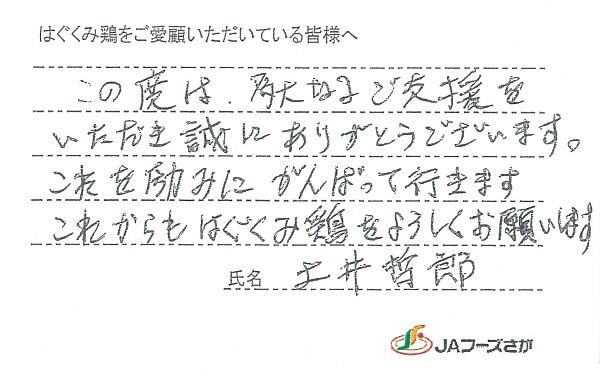 はぐくみ鶏をご愛顧いただいている皆様へ
この度は、多大なるご支援を
いただき誠にありがとうございます。
これを励みにがんばって行きます
これからもはぐくみ鶏をよろしくお願いします
氏名 土井哲郎
JAフーズさが